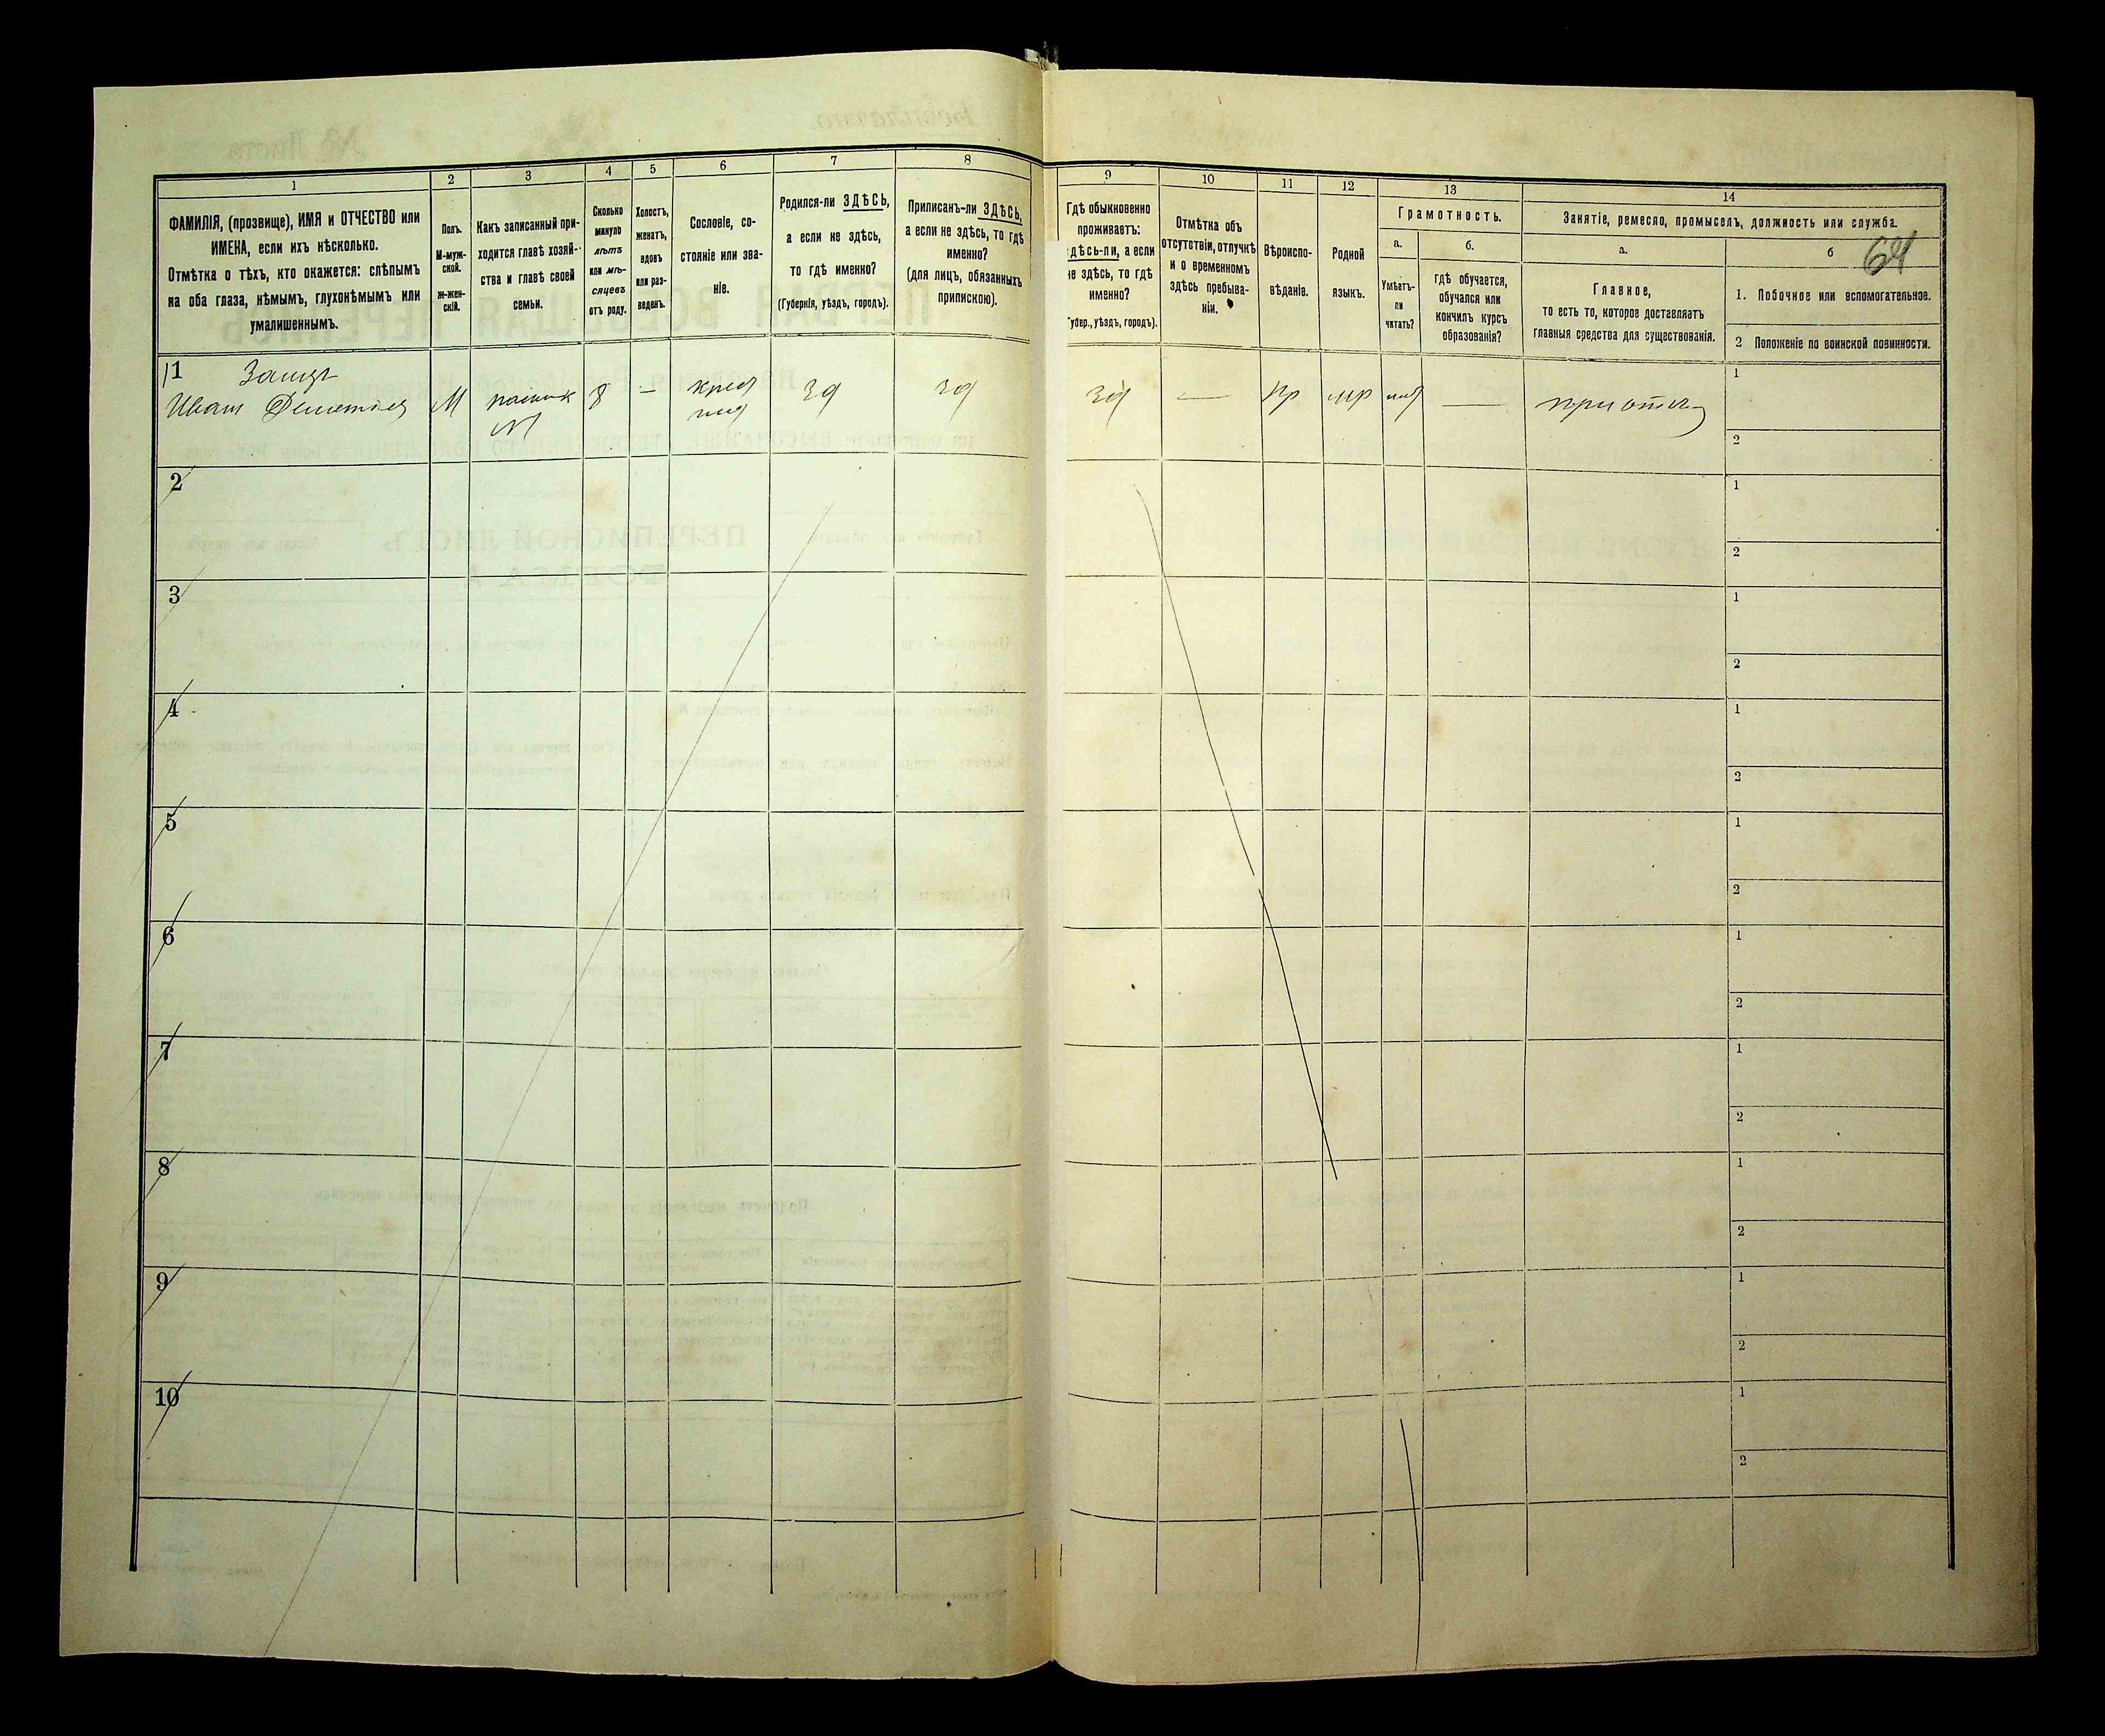 1
ФАМИЛІЯ, (прозвище), ИМЯ и ОТЧЕСТВО или
ИМЕНА, если ихъ нѣсколько.
Отмѣтка о тѣхъ, кто окажется: слѣпымъ
на оба глаза, нѣмымъ, глухонѣмымъ или
умалишеннымъ.
2
Полъ.
М-муж-
ской.
ж-жен-
скій.
3
Какъ записанный при-
ходится главѣ хозяй-
ства и главѣ своей
семьи.
4
Сколько
минуло
лѣтъ
или мѣ-
сяцевъ
отъ роду.
5
Холостъ,
женатъ,
вдовъ
или раз-
веденъ.
6
Сословіе, со-
стояніе или зва-
ніе.
7
Родился-ли ЗДѢСЬ,
а если не здѣсь,
то гдѣ именно?
(Губернія, уѣздъ, городъ).
8
Приписанъ-ли ЗДѢСЬ,
а если не здѣсь, то гдѣ
именно?
(для лицъ, обязанныхъ
припискою).
9
Гдѣ обыкновенно
проживаетъ:
здѣсь-ли, а если
не здѣсь, то гдѣ
именно?
Губер., уѣздъ, городъ).
10
Отмѣтка объ
отсутствіи, отлучкѣ
и о временномъ
здѣсь пребыва-
ніи.
11
Вѣроиспо-
вѣданіе.
12
Родной
языкъ.
13
Грамотность.
а.
Умѣетъ-
ли
читать?
б.
гдѣ обучается,
обучался или
кончилъ курсъ
образованія?
14
Занятіе, ремесло, промыселъ, должность или служба.
а.
Главное,
то есть то, которое доставляетъ
главныя средства для существованія.
б
64
1. Побочное или вспомогательное.
2 Положеніе по воинской повинности.
1
Иван
М
8
—
зд
зд
зд
—
пр
мр
—
при отцѣ
1
2
2
1
2
3
1
2
4
1
2
5
1
2
6
1
2
7
1
2
8
1
2
9
1
2
10
1
2